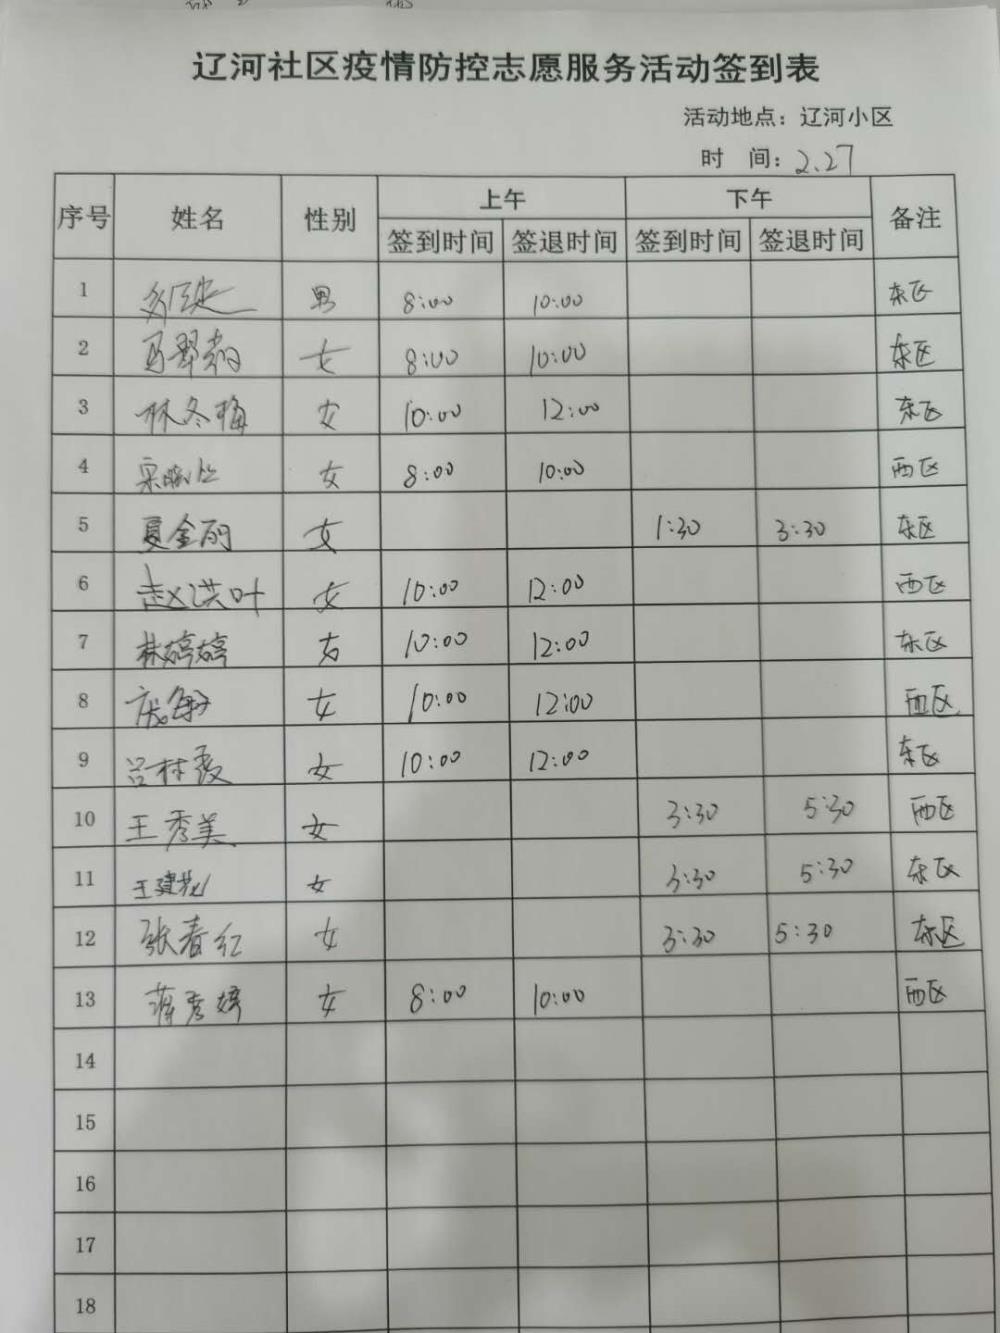 辽河社区疫情防控志愿服务活动签到表
活动地点：辽河小区
时 间：2.27
序号 姓名 性别 上午 下午 备注
签到时间 签退时间 签到时间 签退时间
1 男 8:00 10:00 东区
2 女 8:00 10:00 东区
3 林冬梅 女 10:00 12:00 东区
4 女 8:00 10:00 西区
5 夏金丽 女 1:30 3:30 东区
6 赵洪叶 女 10:00 12:00 西区
7 林婷婷 10:00 12:00 东区
8 女 10:00 12:00 西区
9 吕林霞 女 10:00 12:00 东区
10 王秀美 女 3:30 5:30 西区
11 王建花 女 3:30 5:30 东区
12 张春红 女 3:30 5:30 东区
13 蒋秀婷 女 8:00 10:00 西区
14
15
16
17
18